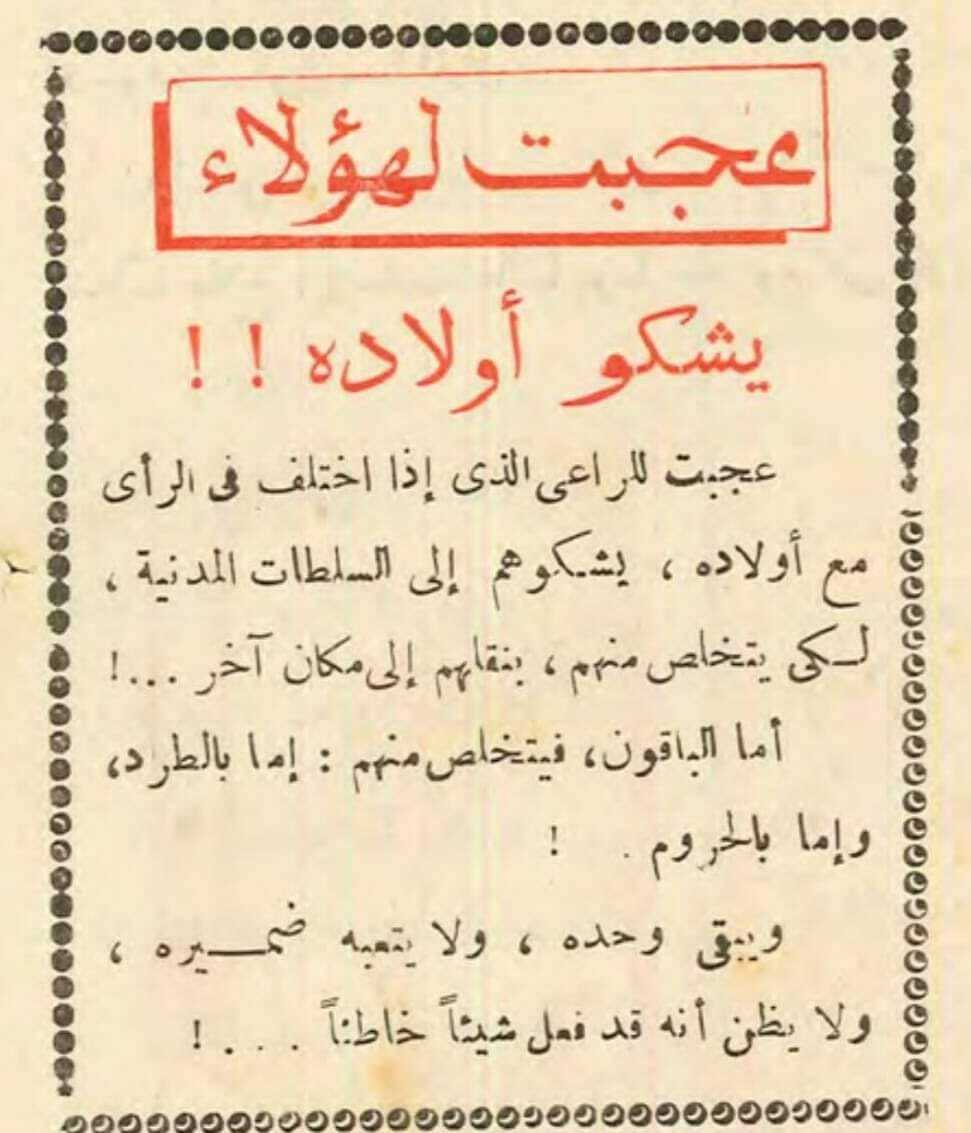 عجبت لهؤلاء
يشكو أولاده ! !
عجبت للراعى الذى إذا اختلف فى الرأى
مع أولاده ، يشكوهم إلى السلطات المدنية ،
لكى يتخلص منهم ، بنقلهم إلى مكان آخر ...!
أما الباقون، فيتخلص منهم : إما بالطرد،
وإما بالحروم . !
ويبقى وحده ، ولا يتعبه ضمـــيره ،
ولا يظن أنه قد فعل شيئاً خاطئاً . . . !